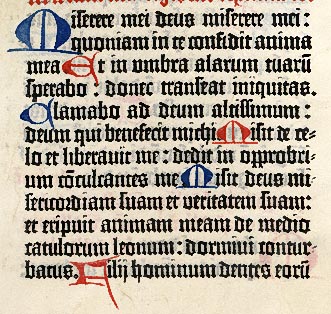 Miserere mei deus miserere mei:
quoniam in te confidit anima
mea Et in umbra alarum tuarū
sperabo: donec transeat iniquitas.
Clamabo ad deum altissimum:
deum qui benefecit michi Misit de ce-
lo et liberauit me: dedit in opprobri-
um cōculcantes me Misit deus mi-
sericordiam suam et veritatem suam:
et eripuit animam meam de medio
catulorum leonum: dormiui contur-
batus. Filij hominum dentes eorū